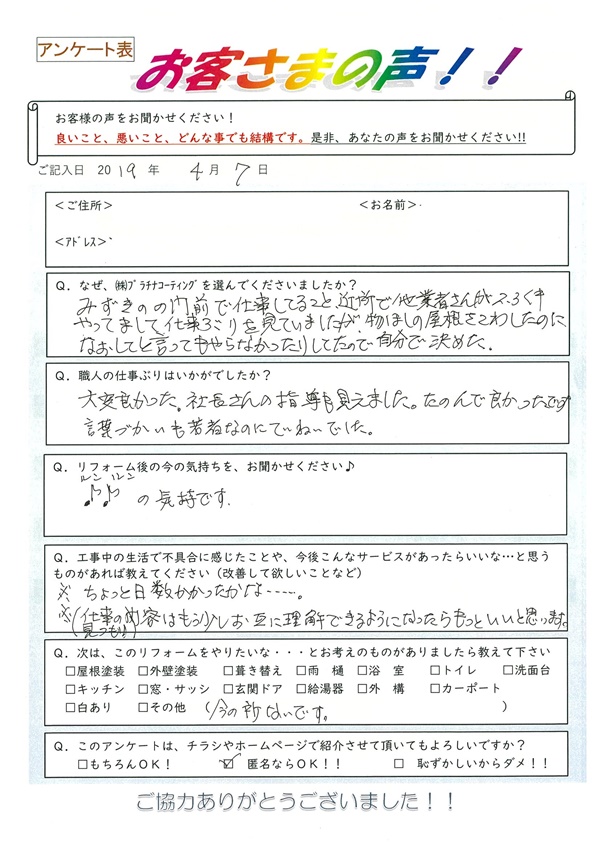 アンケート表
お客さまの声！！
お客様の声をお聞かせください！
良いこと、悪いこと、どんな事でも結構です。是非、あなたの声をお聞かせください!!
ご記入日 2019年 4月 7日
＜ご住所＞ ＜お名前＞
＜ｱﾄﾞﾚｽ＞
Q．なぜ、㈱ﾌﾟﾗﾁﾅｺｰﾃｨﾝｸﾞを選んでくださいましたか？
みずきのの門前で仕事してること、近所で他業者さんが
やってまして、仕事を見ていましたが、物ほしの屋根をこわしたのに
なおしてと言ってもやらなかったりしてたので自分で決めた。
Q．職人の仕事ぶりはいかがでしたか？
大変良かった。社長さんの指導も見えました。たのんで良かったです
言葉づかいも若者なのにていねいでした。
Q．リフォーム後の今の気持ちを、お聞かせください♪
ルン ルン
♪♪ の気持です.
Q．工事中の生活で不具合に感じたことや、今後こんなサービスがあったらいいな…と思う
ものがあれば教えてください（改善して欲しいことなど）
※ ちょっと日数かかったかな----。
※(仕事の内容はもう少しお互に理解できるようになったらもっといいと思います。
(見つもり)
Q．次は、このリフォームをやりたいな・・・とお考えのものがありましたら教えて下さい
□屋根塗装 □外壁塗装 □葺き替え □雨　樋 □浴　室 □トイレ □洗面台
□キッチン □窓・サッシ □玄関ドア □給湯器 □外　構 □カーポート
□白あり □その他 （今の所ないです。 ）
Q．このアンケートは、チラシやホームページで紹介させて頂いてもよろしいですか？
□もちろんOK！ ☑ 匿名ならOK！！ □ 恥ずかしいからダメ！！
ご協力ありがとうございました！！